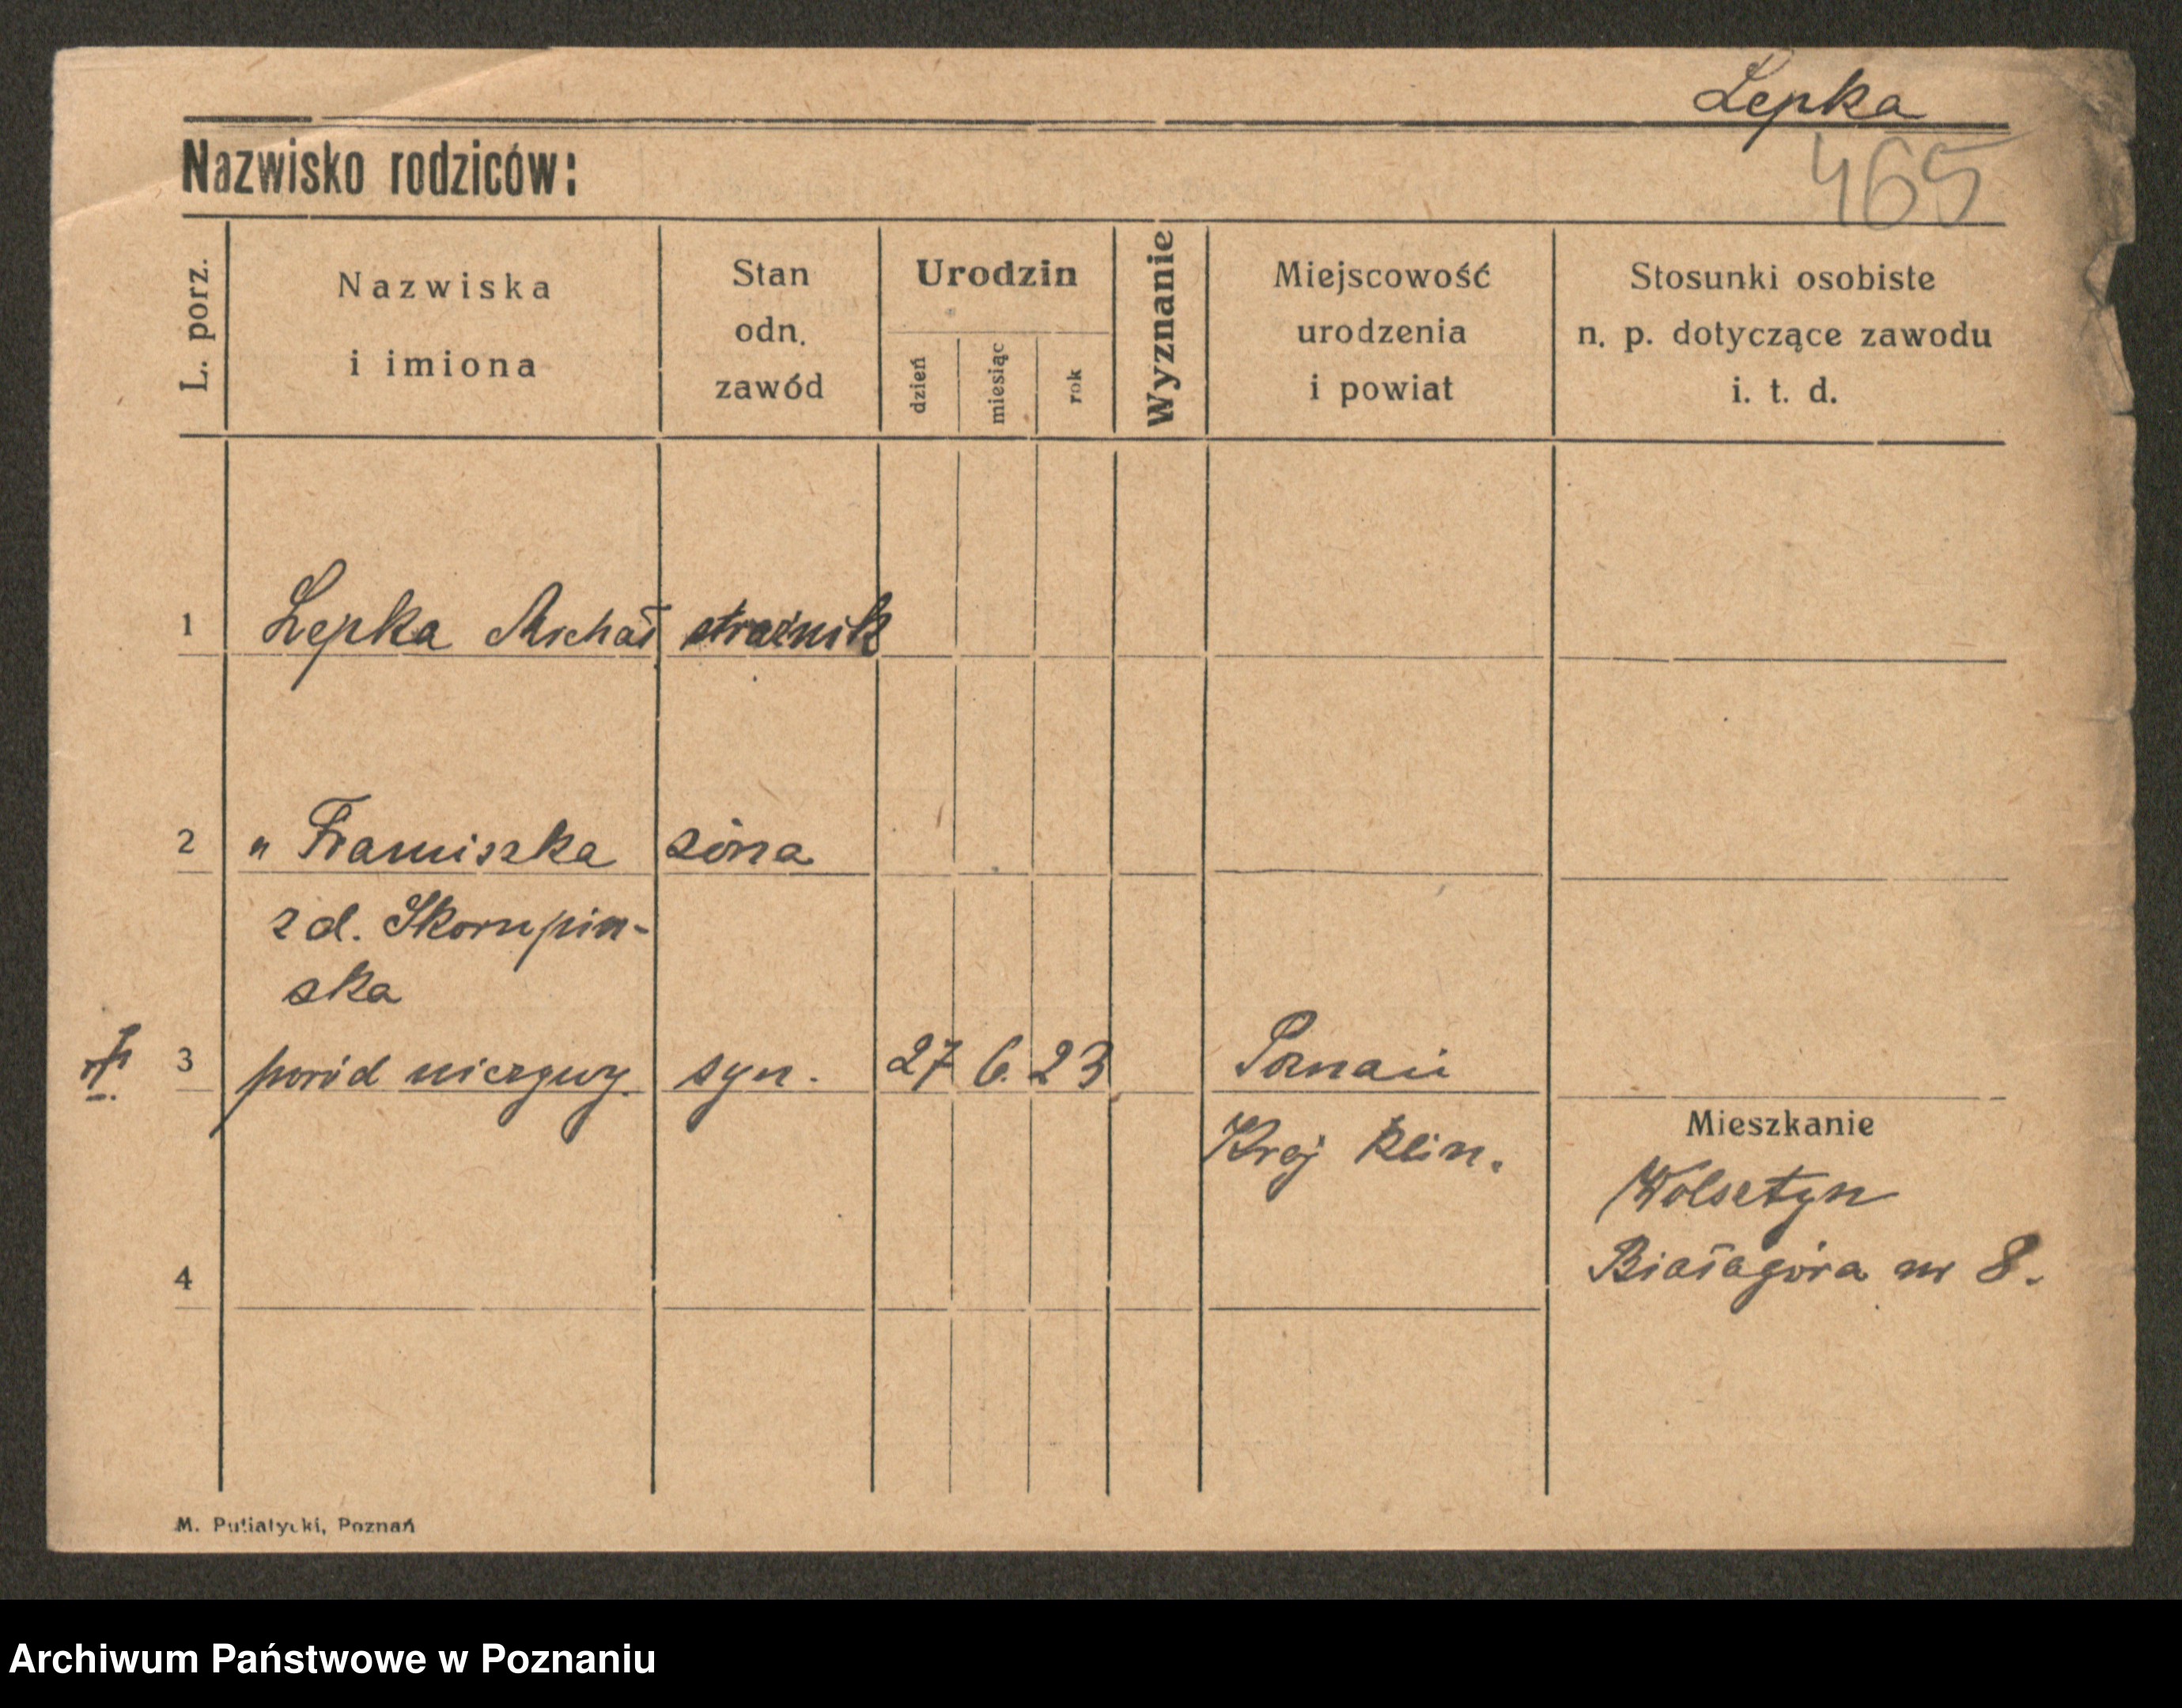 Lepka
465
Nazwisko rodziców:
L. porz.
Nazwiska
i imiona
Stan
odn.
zawód
Urodzin
dzień
miesiąc
rok
Wyznanie
Miejscowość
urodzenia
i powiat
Stosunki osobiste
n. p. dotyczące zawodu
i. t. d.
1 Lepka Michał strażnik
2 " Franciszka żona
z d. Skorupin-
ska
3 poród nieżywy syn. 27 6. 23 Poznań
Kraj Klin.
Mieszkanie
Wolsztyn
Białagóra nr 8.
4
M. Putiatycki, Poznań
Archiwum Państwowe w Poznaniu